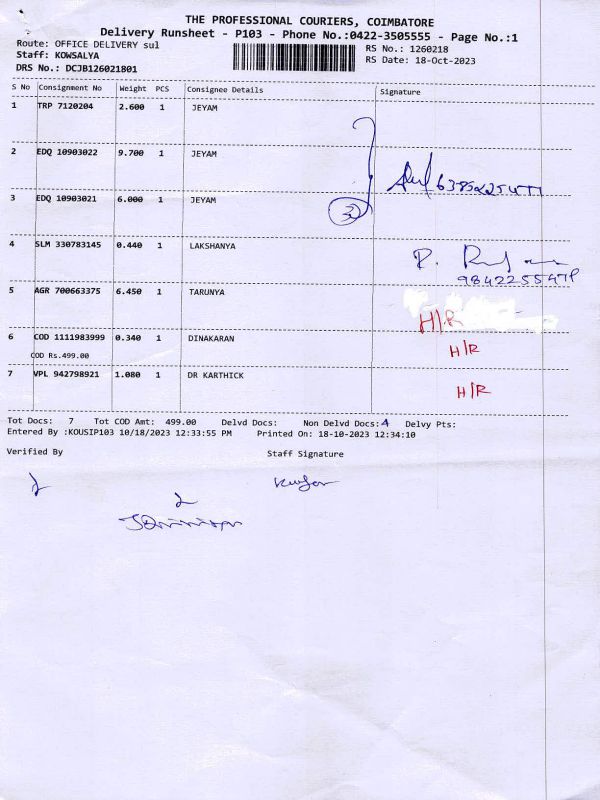 THE PROFESSIONAL COURIERS, COIMBATORE
Delivery Runsheet - P103 - Phone No.:0422-3505555 - Page No.:1
Route: OFFICE DELIVERY sul RS No.: 1260218
Staff: KOWSALYA RS Date: 18-Oct-2023
DRS No.: DCJB126021801
S No Consignment No Weight PCS Consignee Details Signature
1 TRP 7120204 2.600 1 JEYAM
2 EDQ 10903022 9.700 1 JEYAM
3 EDQ 10903021 6.000 1 JEYAM
3
4 SLM 330783145 0.440 1 LAKSHANYA
5 AGR 700663375 6.450 1 TARUNYA
H/R
6 COD 1111983999 0.340 1 DINAKARAN
COD Rs.499.00 H/R
7 VPL 942798921 1.080 1 DR KARTHICK
H/R
Tot Docs: 7 Tot COD Amt: 499.00 Delvd Docs: Non Delvd Docs: 4 Delvy Pts:
Entered By :KOUSIP103 10/18/2023 12:33:55 PM Printed On: 18-10-2023 12:34:10
Verified By Staff Signature